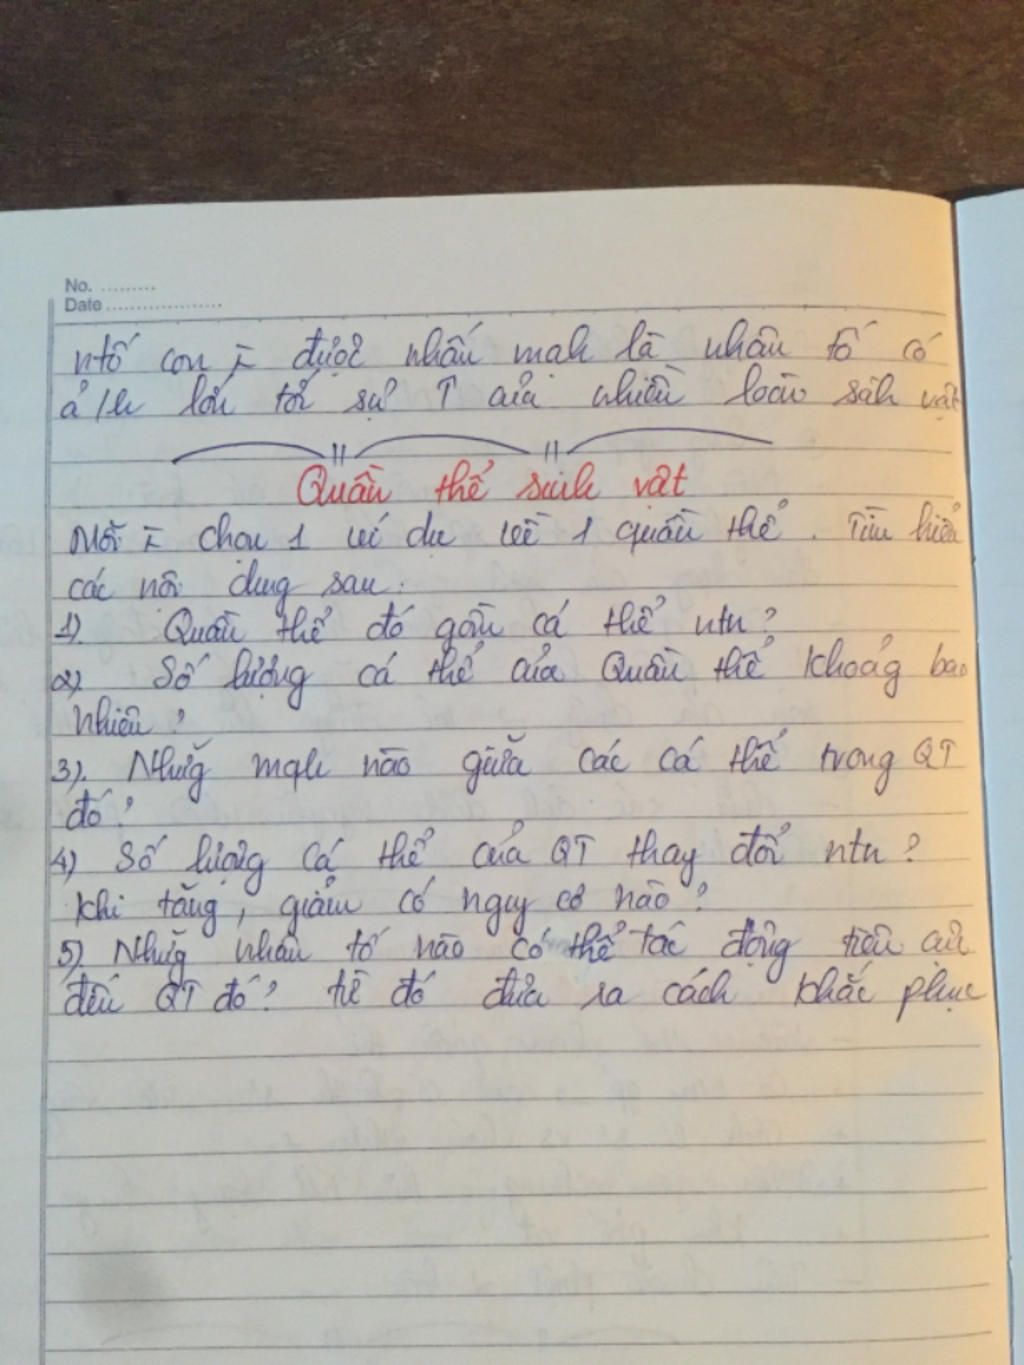 No. .........
Date ....................
ntố con ĩ được nhấn mạh là nhân tố có
ả/h lớn tới sự T của nhiều loài sih vật
Quần thể sinh vật
Mỗi ĩ chọn 1 ví dụ về 1 quần thể. Tìm hiểu
các nội dung sau:
1) Quần thể đó gồm cá thể ntn?
2) Số lượng cá thể của Quần thể khoảg bao
nhiêu?
3). Nhữg mqh nào giữa các cá thể trong QT
đó?
4) Số lượng cá thể của QT thay đổi ntn?
khi tăng, giảm có nguy cơ nào?
5) Nhữg nhân tố nào có thể tác động tiêu cực
đến QT đó? từ đó đưa ra cách khắc phục